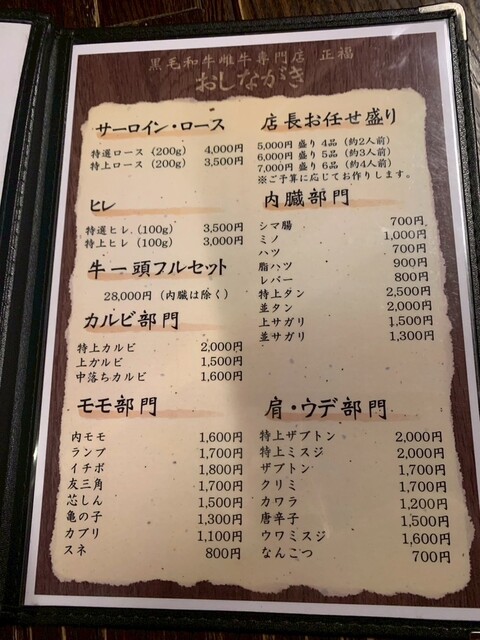 黒毛和牛雌牛専門店 正福
おしながき
サーロイン・ロース
特選ロース (200g) 4,000円
特上ロース (200g) 3,500円
ヒレ
特選ヒレ (100g) 3,500円
特上ヒレ (100g) 3,000円
牛一頭フルセット
28,000円 (内臓は除く)
カルビ部門
特上カルビ 2,000円
上カルビ 1,500円
中落ちカルビ 1,600円
モモ部門
内モモ 1,600円
ランプ 1,700円
イチボ 1,800円
友三角 1,700円
芯しん 1,500円
亀の子 1,300円
カブリ 1,100円
スネ 800円
店長お任せ盛り
5,000円 盛り 4品 (約2人前)
6,000円 盛り 5品 (約3人前)
7,000円 盛り 6品 (約4人前)
※ご予算に応じてお作りします。
内臓部門
シマ腸 700円
ミノ 1,000円
ハツ 700円
脂ハツ 900円
レバー 800円
特上タン 2,500円
並タン 2,000円
上サガリ 1,500円
並サガリ 1,300円
肩・ウデ部門
特上ザブトン 2,000円
特上ミスジ 2,000円
ザブトン 1,700円
クリミ 1,700円
カワラ 1,200円
唐辛子 1,500円
ウワミスジ 1,600円
なんこつ 700円